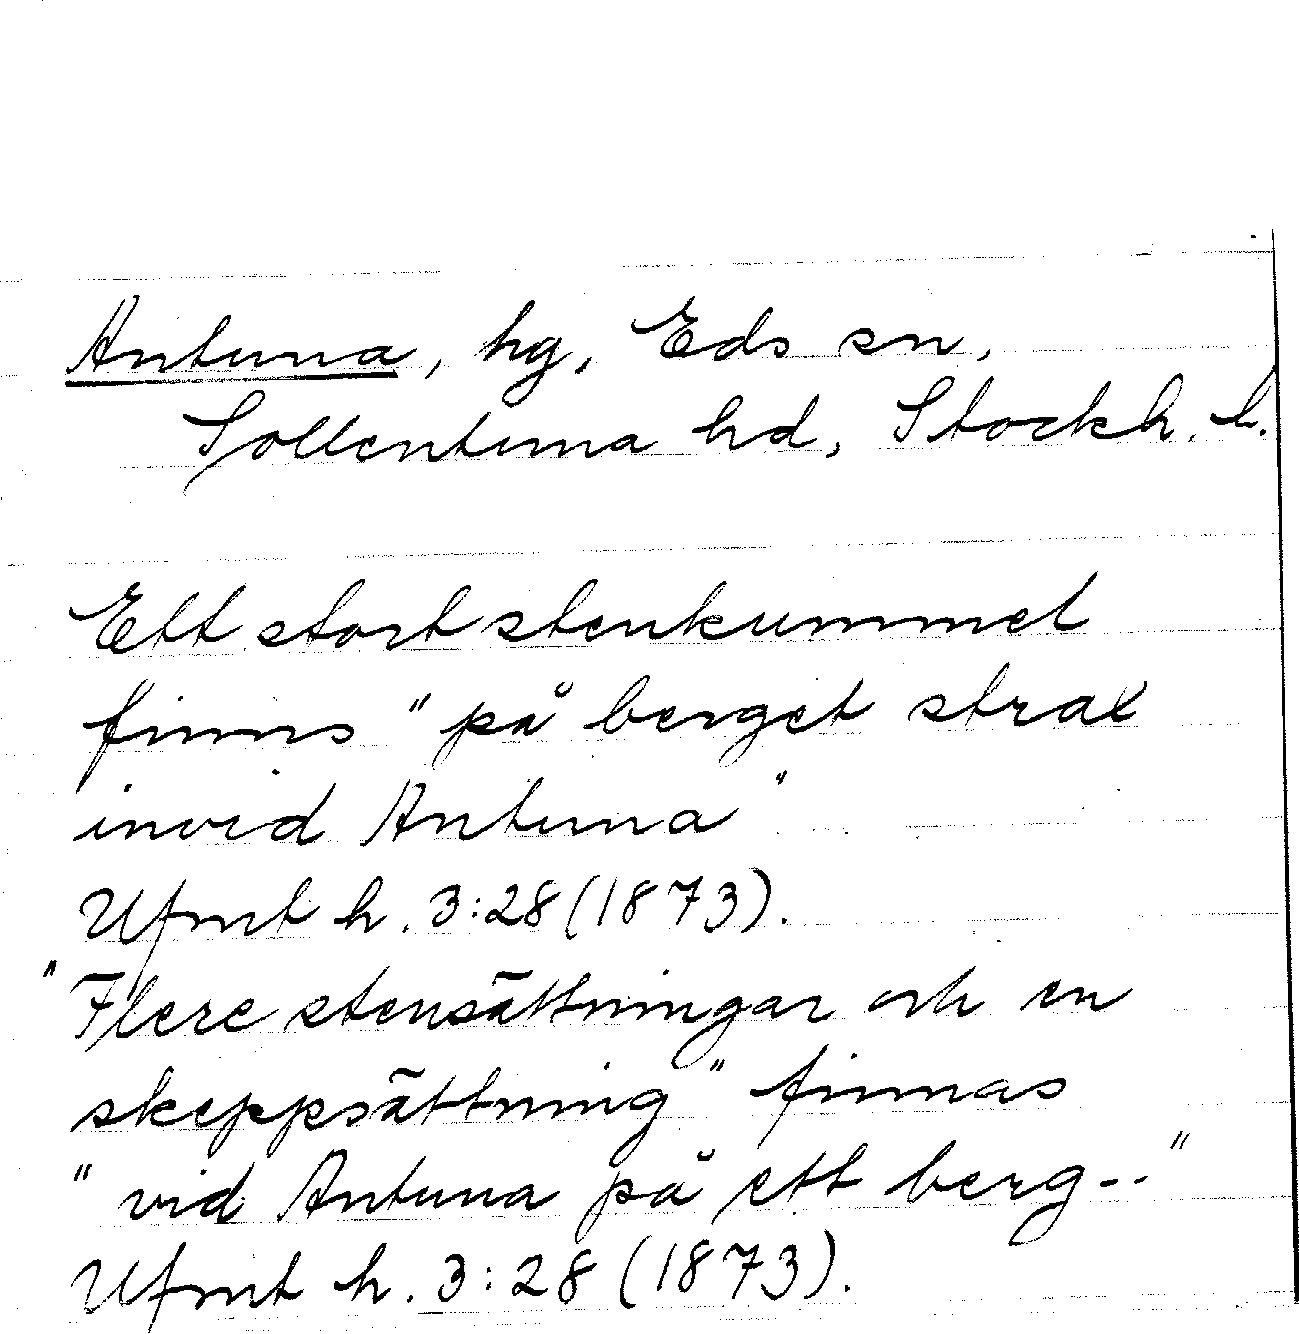 Antuna, hg, Eds sn,
Sollentuna hd, Stockh. l.
Ett stort stenkummel
finns "på berget strax
invid Antuna"
Ufmt h. 3:28 (1873).
"Flere stensättningar och en
skeppsättning" finnas
"vid Antuna på ett berg--"
Ufmt h. 3:28 (1873).